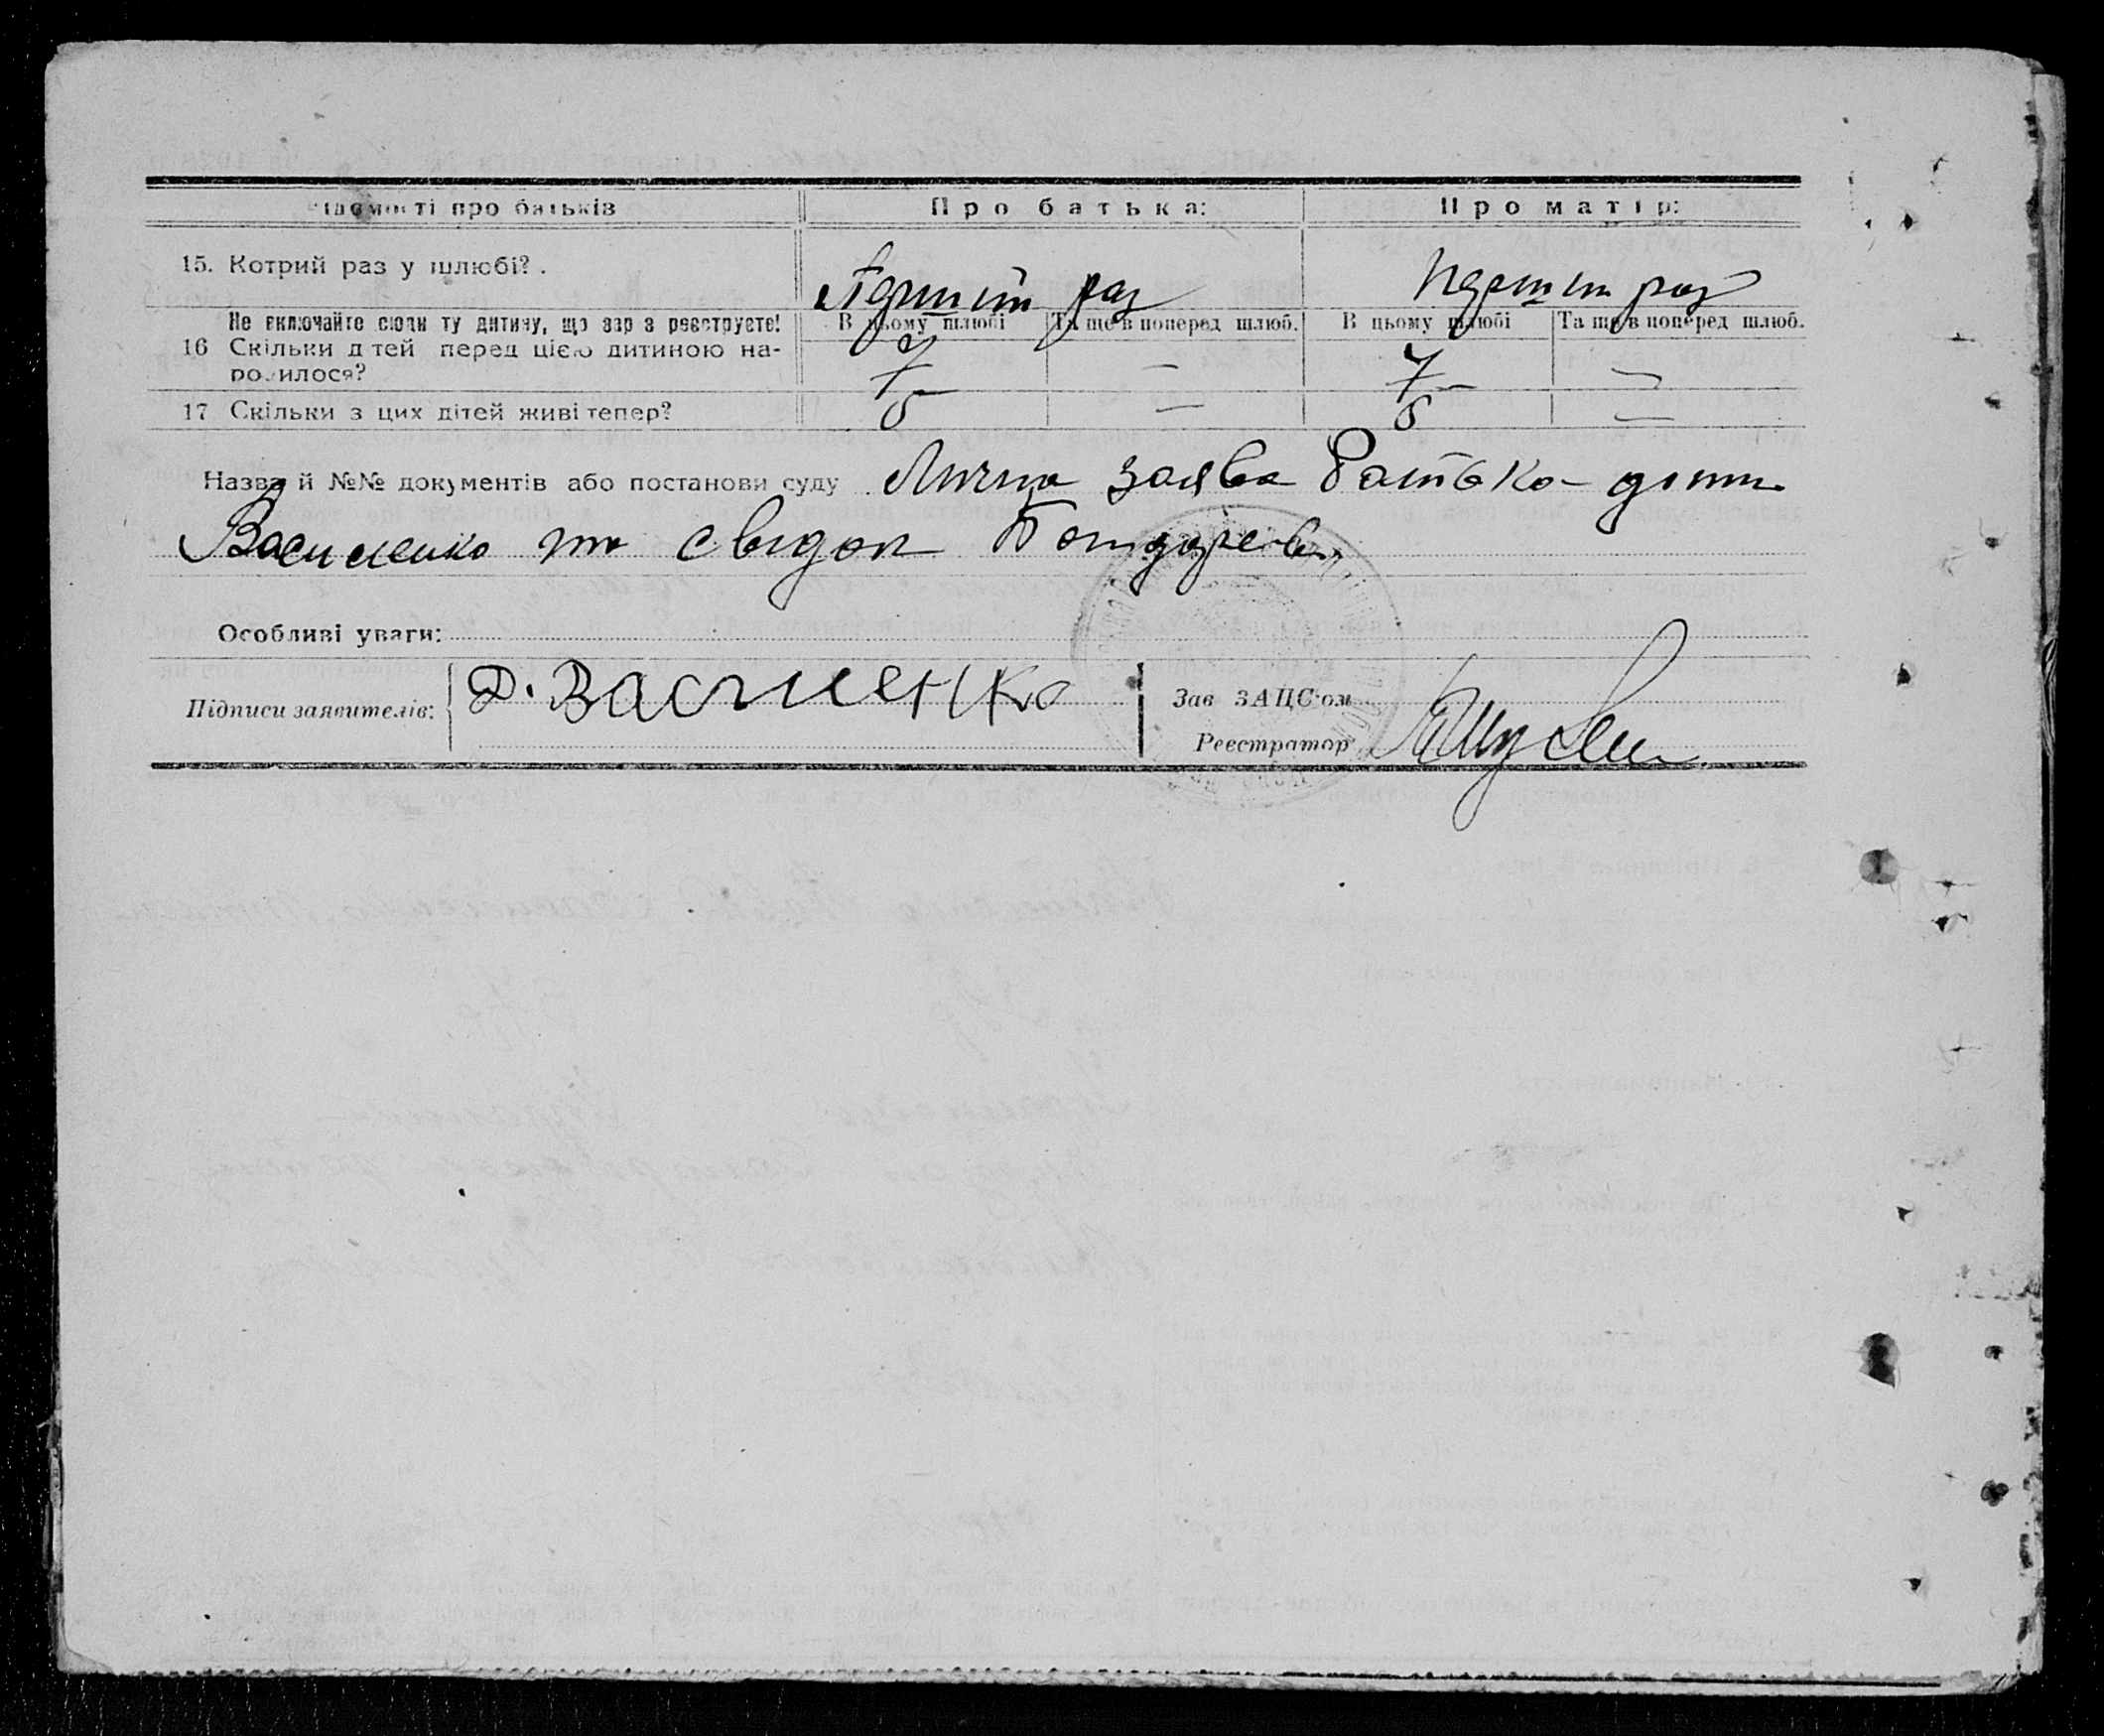 Відомості про батьків Про батька: Про матір:
15. Котрий раз у шлюбі? . Перший раз Перший раз
Не включайте сюди ту дитину, що зараз реєструєте! В цьому шлюбі Та ще в поперед шлюб. В цьому шлюбі Та ще в поперед шлюб.
16 Скільки дітей перед цією дитиною на-
родилося? 7 — 7 —
17 Скільки з цих дітей живі тепер? 5 — 5 —
Назва й №№ документів або постанови суду Лична заява батька
Василенко та свидок
Особливі уваги:
Підписи заявителів: Д. Василенко
Зав ЗАЦС'ом
Реєстратор